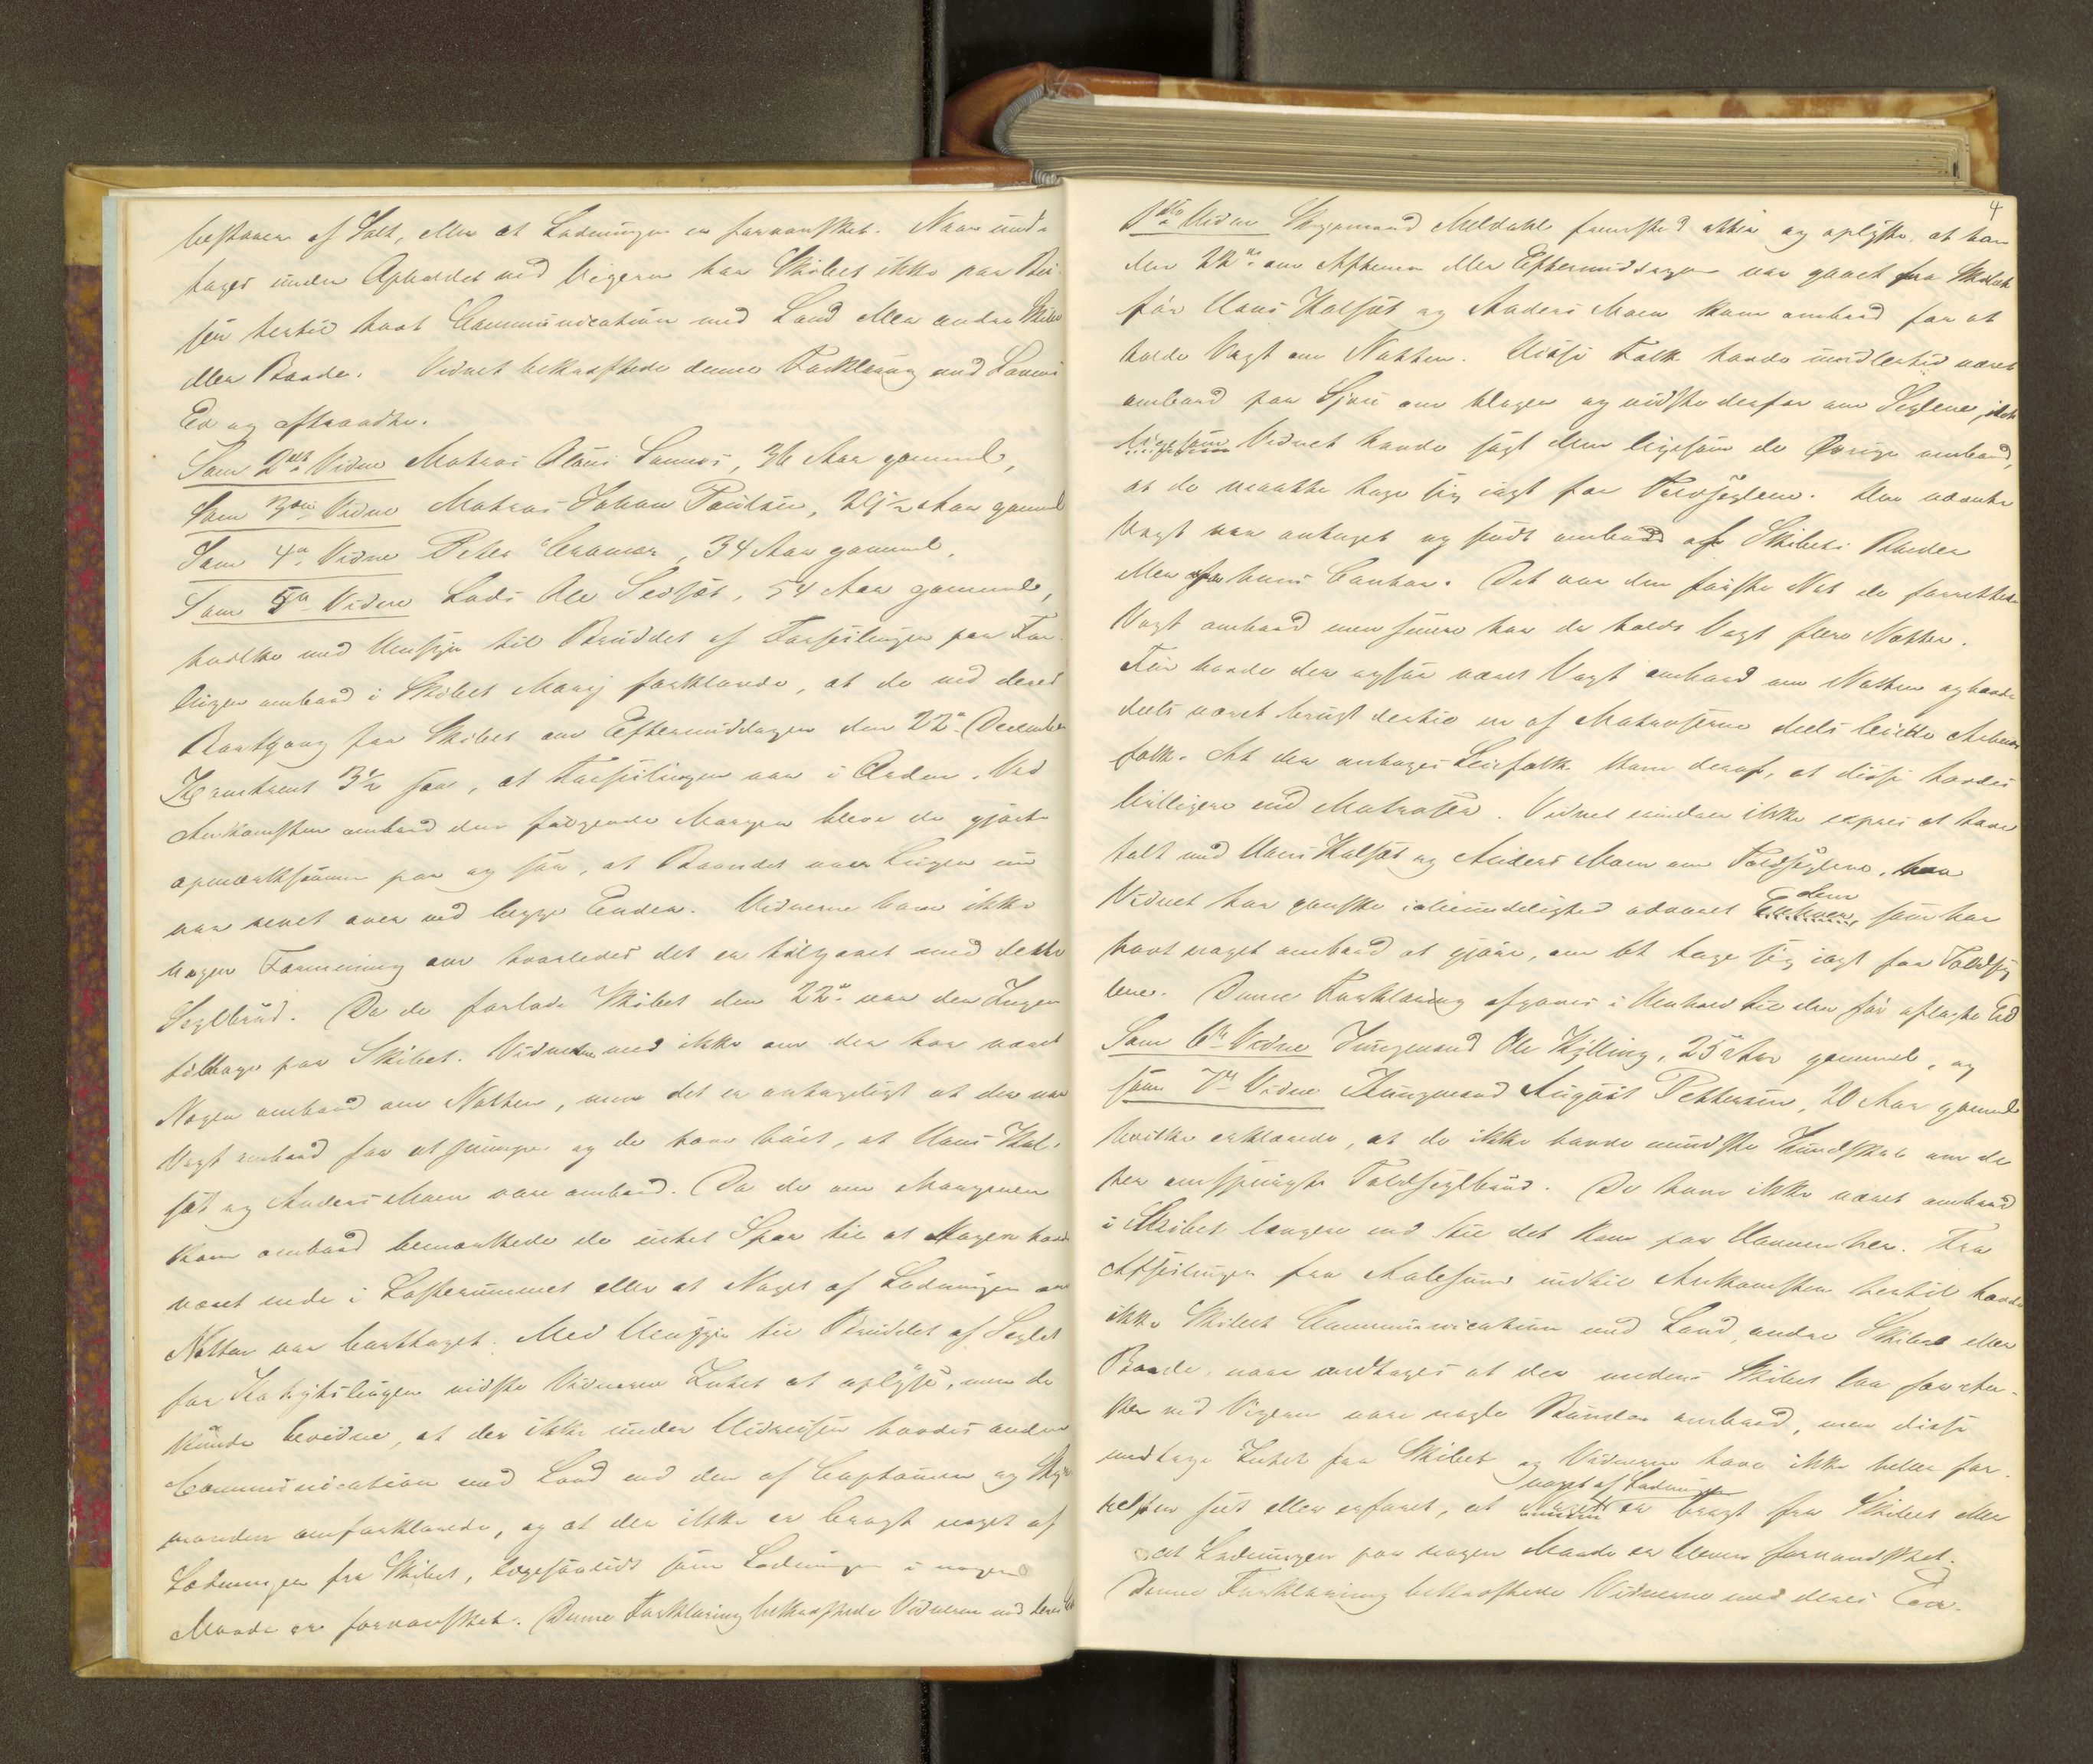 bestaaer af Salt, eller at Ladningen er forvansket. Naar und-
tages under Opholdet ved Vigeren har Skibet ikke paa Rei-
sen hertil havt Communication med Land eller andre Skibe
eller Baade. Vidnet bekræftede denne Forklaring med Lovens
Ed og aftraadte.
Som 2det Vidne Matros Claus Sannes, 36 Aar gammel,
Som 3die Vidne Matros Johan Poulsen, 29½ Aar gammel
Som 4de Vidne Peter Cramer, 34 Aar gammel.
Som 5te Vidne Lods Ole Sevsøt, 54 Aar gammel,
hvilke med Hensyn til Bruddet af Forseilingen paa For-
lugen ombord i Skibet Marij forklarede, at de ved deres
Bortgang fra Skibet om Eftermiddagen den 22de December
Kl omtrent 3½ saa, at Forseilingen var i Orden. Ved
Ankomsten ombord den følgende Morgen bleve de gjorte
opmærksomme paa og saa, at Baandet over Lugen nu
var revet over ved begge Ender. Vidnerne have ikke
nogen Formening om hvorledes det er tilgaaet med dette
Seglbrud. Da de forlode Skibet den 22de var der Ingen
tilbage paa Skibet. Vidnerne ved ikke om der har været
Nogen ombord om Natten, men det er antageligt at der var
Vagt ombord for at pumpe og de have hørt, at Hans Hal-
søt og Anders Moen vare ombord. Da de om Morgenen
kom ombord bemærkede de intet Spor til at Nogen havde
været nede i Lasterummet eller at Noget af Ladningen om
Natten var borttaget. Med Hensyn til Bruddet af Seglet
for Kahytslugen vidste Vidnerne Intet at oplyse, men de
kunde bevidne, at der ikke under Udreisen havdes anden
Communication med Land end den af Captainen og Styr-
manden omforklarede, og at der ikke er bragt noget af
Ladningen fra Skibet, ligesaalidt som Ladningen i nogen
Maade er forvansket. Denne Forklaring bekræftede Vidnerne med deres Ed
4
1ste Vidne Styrmand Meldahl fremstod atter og oplyste, at han
den 22de om Aftenen eller Eftermiddagen var gaaet fra Skibet
før Hans Halsøt og Anders Moen kom ombord for at
holde Vagt om Natten. Disse Folk havde imidlertid været
ombord paa Sjou om Dagen og vidste derfor om Seglene, idet
ligesom Vidnet havde sagt dem ligesom de Øvrige ombord,
at de maatte tage sig iagt for Toldseglene. Den nævnte
Vagt var antaget og sendt ombord af Skibets Rheder
eller fra hans Contor. Det var den første Nat de forrettede
Vagt ombord men senere har de holdt Vagt flere Nætter.
Før havde der ogsaa været Vagt ombord om Natten og havde
deels været brugt dertil en af Matroserne deels leiede Arbeids
folk. At der antoges Leiefolk kom deraf, at disse havdes
billigere end Matroser. Vidnet erindrer ikke expres at have
talt med Hans Halsøt og Anders Moen om Toldseglene, men
Vidnet har ganske i Almindelighed advaret Enhver dem som har
havt noget ombord at gjøre, om at tage sig iagt for Toldseg
lene. Denne Forklaring afgaves i Henhold til den før aflagte Ed
Som 6te Vidne Jungmand Ole Kylling, 25 Aar gammel, og
som 7de Vidne Jungmand August Pettersen, 20 Aar gammel
hvilke erklærede, at de ikke havde mindste Kundskab om de
her omspurgte Toldseglbrud. De have ikke været ombord
i Skibet længere end til det kom paa Havnen her. Fra
Afseilingen fra Aalesund indtil Ankomsten hertil havde
ikke Skibet Communication med Land, andre Skibe eller
Baade, naar undtages at der medens Skibet laa for An-
ker ved Vigeren vare nogle Bønder ombord, men disse
medtoge Intet fra Skibet og Vidnerne have ikke heller for-
resten seet eller erfaret, at noget af Ladningen er bragt fra Skibet eller
at Ladningen paa nogen Maade er bleven forvandsket.
Denne Forklaring bekræftede Vidnerne med deres Eed.